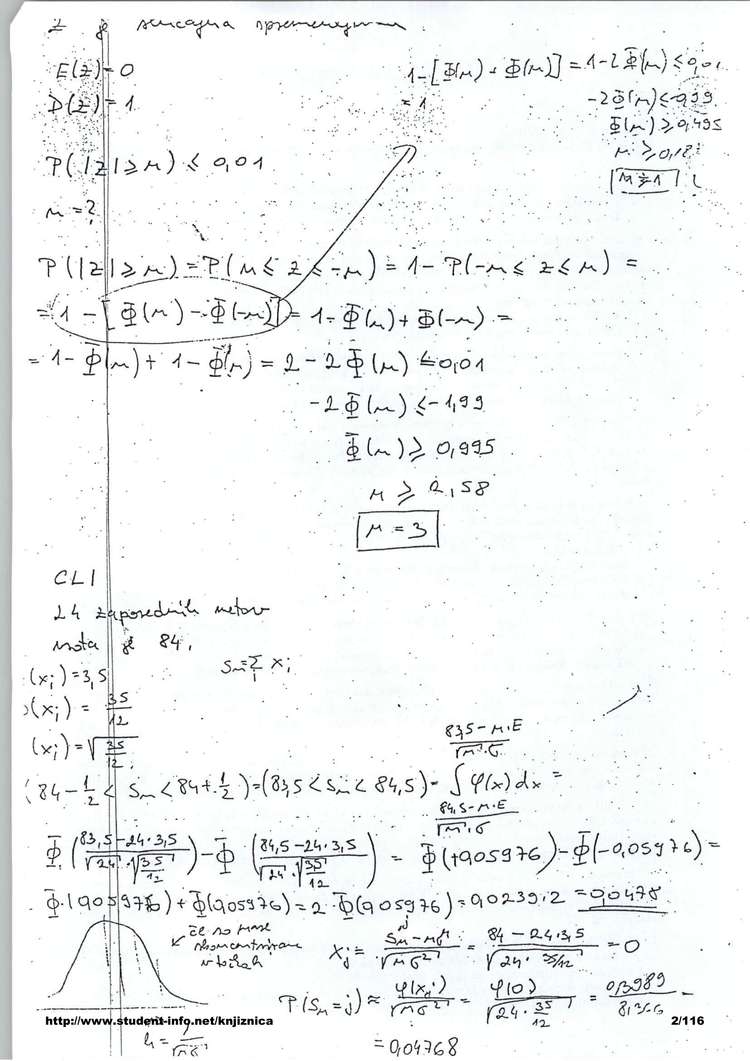 Z je
E(z)=0
D(z)=1
P(|z|≥n) ≤ 0,01
n=?
1-[Φ(n)+Φ(n)]=1-2Φ(n)≤0,01
=1
-2Φ(n)≤-0,99
Φ(n)≥0,495
P(|z|≥n)=P(n≤z≤-n)=1-P(-n≤z≤n)=
=1-[Φ(n)-Φ(-n)]=1-Φ(n)+Φ(-n)=
=1-Φ(n)+1-Φ(n)=2-2Φ(n)≤0,01
-2Φ(n)≤-1,99
Φ(n)≥0,995
n≥2,58
n=3
CLI
24 zaporednih metov
vsota je 84.
(xi)=3,5
Sn=Σ xi
(xi)=35/12
(xi)=√(35/12)
(84-1/2<Sn<84+1/2)=(83,5<Sn<84,5)=∫φ(x)dx=
83,5-n·E/√n·σ
84,5-n·E/√n·σ
Φ((83,5-24·3,5)/(√24·√(35/12)))-Φ((84,5-24·3,5)/(√24·√(35/12)))=Φ(+0,05976)-Φ(-0,05976)=
Φ(0,05976)+Φ(0,05976)=2·Φ(0,05976)=0,0239·2=0,0478
če so mase
skoncentrirane
v točkah
xj=(Sn-nμ)/√(nσ²)=(84-24·3,5)/√(24·35/12)=0
P(Sn=j)≈φ(xj)/√(nσ²)=φ(0)/√(24·35/12)=0,3989/8,366=
=0,04768
http://www.student-info.net/knjiznica
2/116